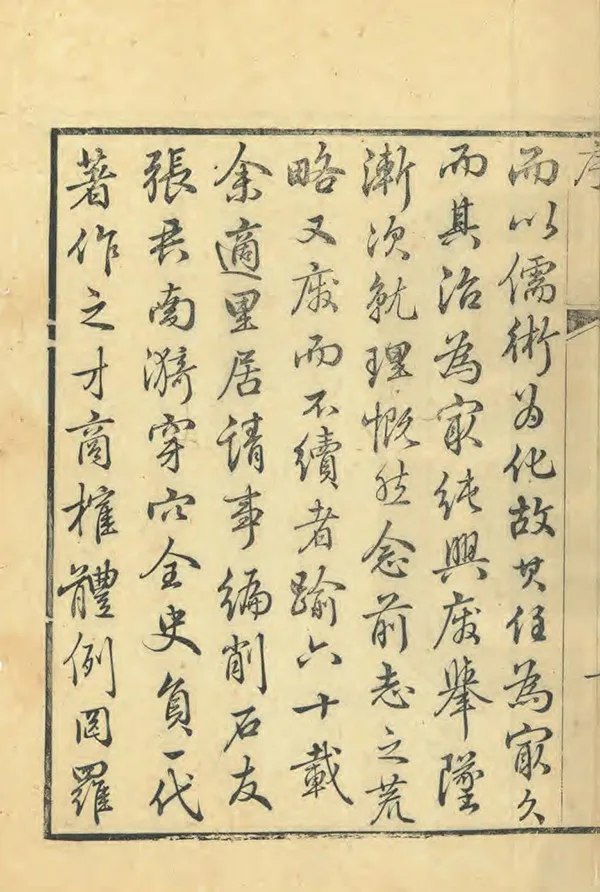 序
而以儒術为化故其任為㝡久
而其治為㝡純興廢舉墜
漸次就理慨然念前志之荒
略又廢而不續者踰六十載
余適里居請事編削石友
張君南漪穿穴全史負一代
著作之才商榷體例罔羅